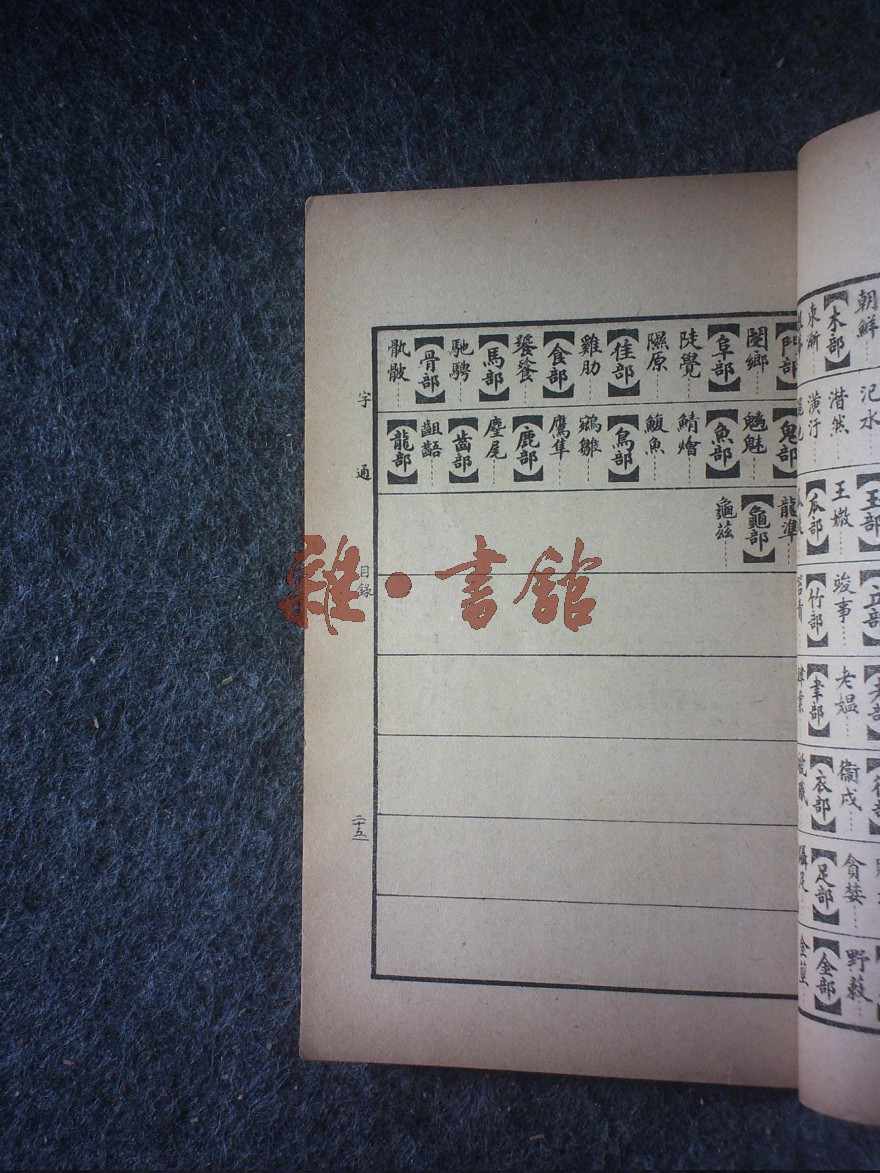 朝鮮
【木部】
東漸
汜水
潸然
潢汙
【玉部】
【瓜部】
【立部】
竣事
【竹部】
老媼
【聿部】
肄業
衞戍
【衣部】
貪婪
【足部】
野蔌
【金部】
【門部】
閿鄉
【阜部】
陡覺
隰原
【隹部】
雞肋
【食部】
饕餮
【馬部】
馳騁
【骨部】
骫骳
【鬼部】
魑魅
【魚部】
鯖燴
鮁魚
【鳥部】
鵷雛
鷹隼
【鹿部】
麈尾
【齒部】
齟齬
【龍部】
龍準
【龜部】
龜茲
字通 目錄 二十五
雜·書館